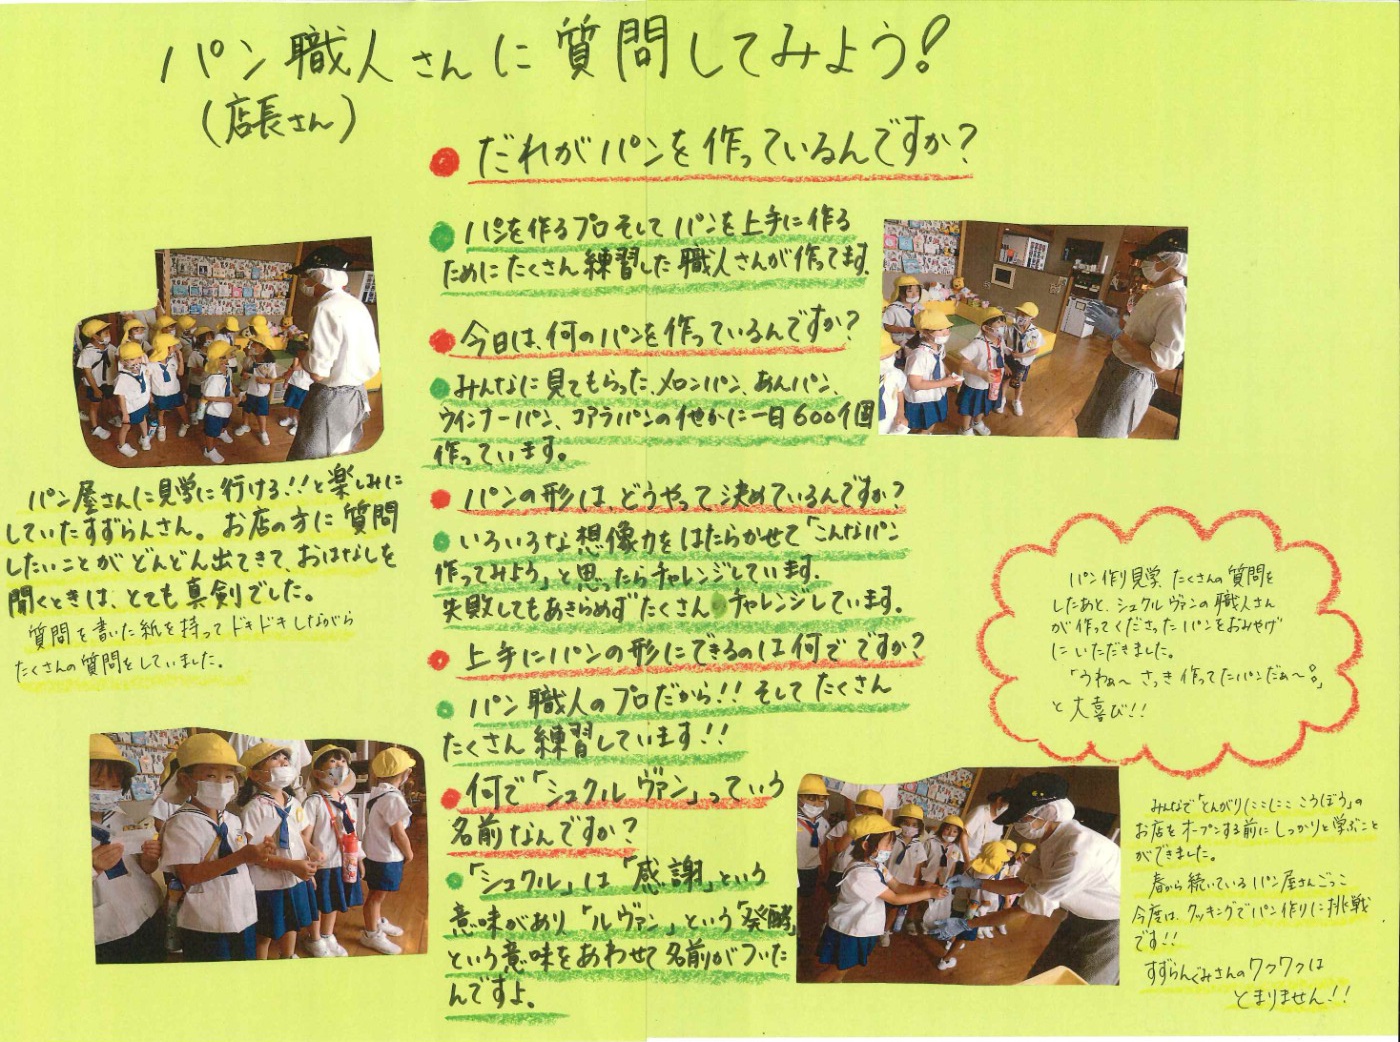 パン職人さんに質問してみよう!
(店長さん)
だれがパンを作っているんですか?
パンを作るプロそして パンを上手に作る
ためにたくさん練習した職人さんが作ってます。
今日は、何のパンを作っているんですか?
みんなに見てもらった、メロンパン、あんパン、
ウインナーパン、コアラパンの他かに一日600個
作っています。
パンの形は、どうやって決めているんですか?
いろいろな想像力をはたらかせて「こんなパン
作ってみよう」と思ったらチャレンジしています。
失敗してもあきらめず たくさんチャレンジしています。
上手にパンの形にできるのは何でですか?
パン職人のプロだから!!そしてたくさん
たくさん練習しています!!
何で「シュクルヴァン」っていう
名前なんですか?
「シュクル」は「感謝」という
意味があり「ルヴァン」という「発酵」
という意味をあわせて名前がついた
んですよ。
パン屋さんに見学に行ける!!と楽しみに
していたすずらんさん。お店の方に質問
したいことがどんどん出てきて、おはなしを
聞くときは、とても真剣でした。
質問を書いた紙を持ってドキドキしながら
たくさんの質問をしていました。
パン作り見学、たくさんの質問を
したあと、シュクルヴァンの職人さん
が作ってくださったパンをおみやげ
にいただきました。
「うわぁ〜さっき作ってたパンだぁ〜!。」
と大喜び!!
みんなで「とんがりにこにここうぼう」の
お店をオープンする前にしっかりと学ぶこと
ができました。
春から続いているパン屋さんごっこ
今度は、クッキングでパン作りに挑戦
です!!
すずらんぐみさんのワクワクは
とまりません!!